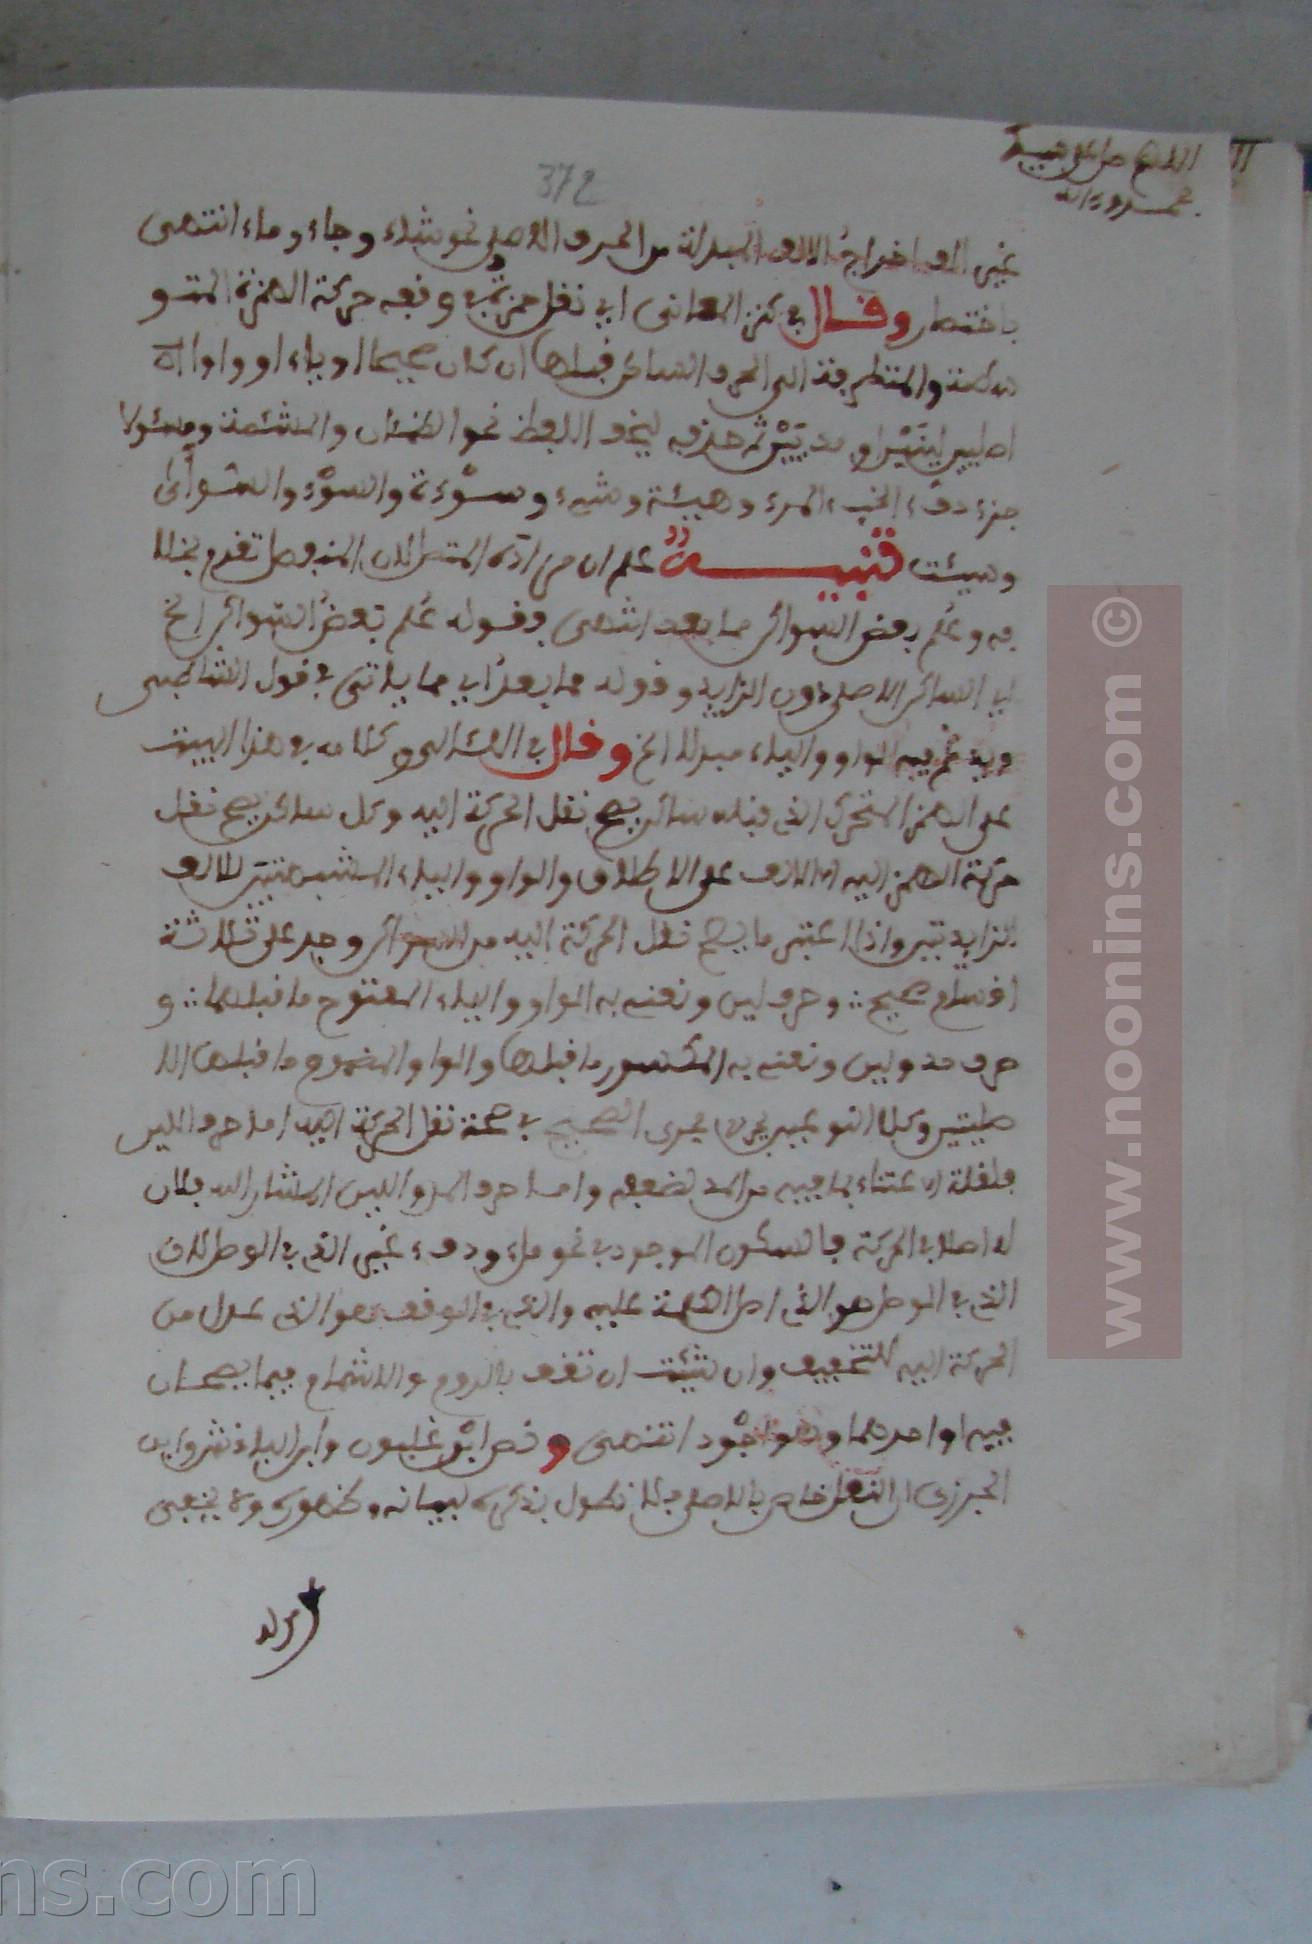 اللهم صل على
محمد وءاله
372
غير الف اخراج الالف المبدلة من الحرف الاصلي نحو شاء وجاء وماء انتهى
باختصار وقال في كنز المعاني اي نقل حمزة في وقفه حركة الهمزة المتو
سطة والمتطرفة الى الحرف الساكن قبلها ان كان صحيحا او ياء او واوا
اصليين لينين او مديين ثم حذفه ليخف اللفظ نحو الظمئان والمشئمة ومسئولا
جزء دفء الخبء المرء وهيئة وشيء وسوءة والسوء والسوأى
وسيئت تنبيه علم ان من المتصل المنفصل تقدم بخلا
فه وعلم بعض السواكن مما بعد انتهى فقوله علم بعض السواكن الخ
اي الساكن الاصلي دون الزايد وقوله مما بعد اي مما ياتي في قول الشاطبي
ويدغم فيه الواو والياء مبدلا الخ وقال في اللئالي وكلامه في هذا البيت
على الهمز المتحرك الذي قبله ساكن يصح نقل الحركة اليه وكل ساكن يصح نقل
حركة الهمز اليه الا الالف على الاطلاق والواو والياء المشبهتين للالف
الزايدتين واذا اعتبر ما يصح نقل الحركة اليه من السواكن وجد على ثلاثة
اقسام صحيح وحرف لين ونعني به الواو والياء المفتوح ما قبلهما و
حرف مد ولين ونعني به المكسور ما قبلها والواو المضموم ما قبلها الا
صليتين وكلا النوعين يجرى مجرى الصحيح في صحة نقل الحركة اليه اما حرف اللين
فلقلة الاعتناء بما فيه من المد لضعفه واما حرف المد واللين المشار اليه فلان
له اصلا في الحركة فالسكون الموجود في نحو ملء ودفء غير الذي في الوصل لان
الذي في الوصل هو الذي اصل الكلمة عليه والذي في الوقف هو الذي عدل من
الحركة اليه للتخفيف وان شئت ان تقف بالروم والاشمام فيما يصحان
فيه او احدهما وهو اجود انتهى و نص ابو غلبون وابن
الجزري ان النقل خاص بالاصلي فلا نطول بذكره لبيانه وظهوره ولا يخفى